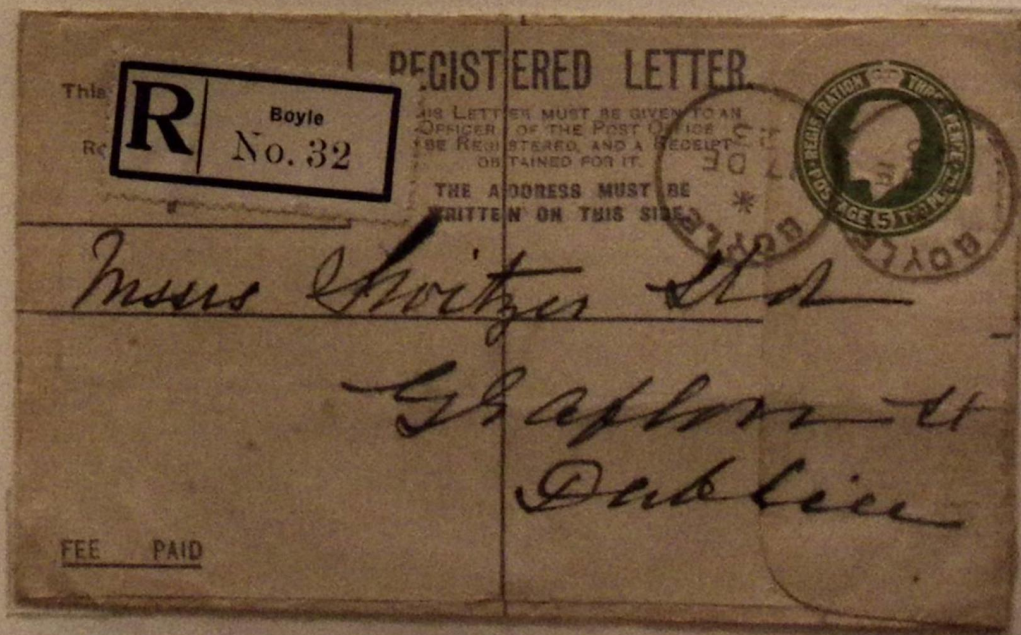 REGISTERED LETTER.
This
R
Boyle
No. 32
IS LETTER MUST BE GIVEN TO AN
OFFICER OF THE POST OFFICE
BE REGISTERED, AND A RECEIPT
OBTAINED FOR IT.
THE ADDRESS MUST BE
WRITTEN ON THIS SIDE.
REGISTRATION THREE PENCE
POSTAGE TWO PENCE
5
BOYLE
17 DE
BOYLE
Messrs Switzer Ltd
Grafton St
Dublin
FEE PAID